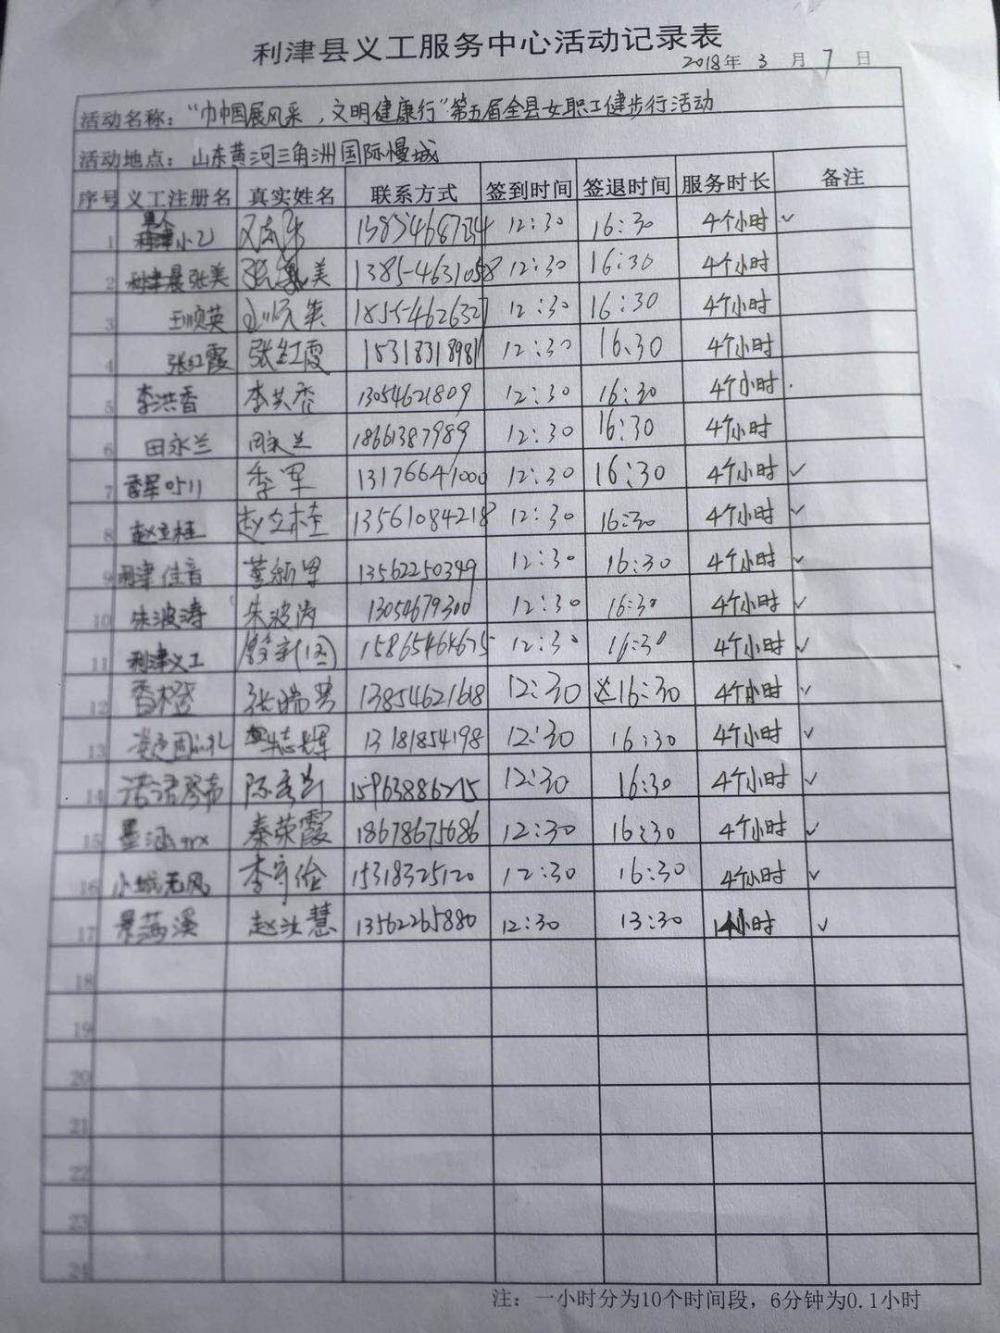 利津县义工服务中心活动记录表
2018年 3 月 7 日
活动名称: “巾帼展风采，文明健康行”第五届全县女职工健步行活动
活动地点: 山东黄河三角洲国际慢城
序号 义工注册名 真实姓名 联系方式 签到时间 签退时间 服务时长 备注
1 利津小乙 12:30 16:30 4个小时 ✓
2 张美 美 12:30 16:30 4个小时
3 王顺英 12:30 16:30 4个小时
4 张红霞 张红霞 15318318981 12:30 16:30 4个小时
5 李洪香 李洪香 13054621809 12:30 16:30 4个小时
6 田永兰 田永兰 18661387989 12:30 16:30 4个小时
7 李军 13176641000 12:30 16:30 4个小时 ✓
8 赵立桂 赵立桂 13561084218 12:30 16:30 4个小时 ✓
9 利津佳音 13562250349 12:30 16:30 4个小时 ✓
10 朱波涛 朱波涛 13054679300 12:30 16:30 4个小时 ✓
11 利津义工 15865464675 12:30 16:30 4个小时 ✓
12 香橙 13854621618 12:30 16:30 4个小时 ✓
13 13181854198 12:30 16:30 4个小时 ✓
14 15963886215 12:30 16:30 4个小时 ✓
15 秦荣霞 18678675686 12:30 16:30 4个小时 ✓
16 小城无风 李守俭 15318325120 12:30 16:30 4个小时 ✓
17 慧 13562265880 12:30 13:30 1个小时 ✓
18
19
20
21
22
23
24
注: 一小时分为10个时间段，6分钟为0.1小时